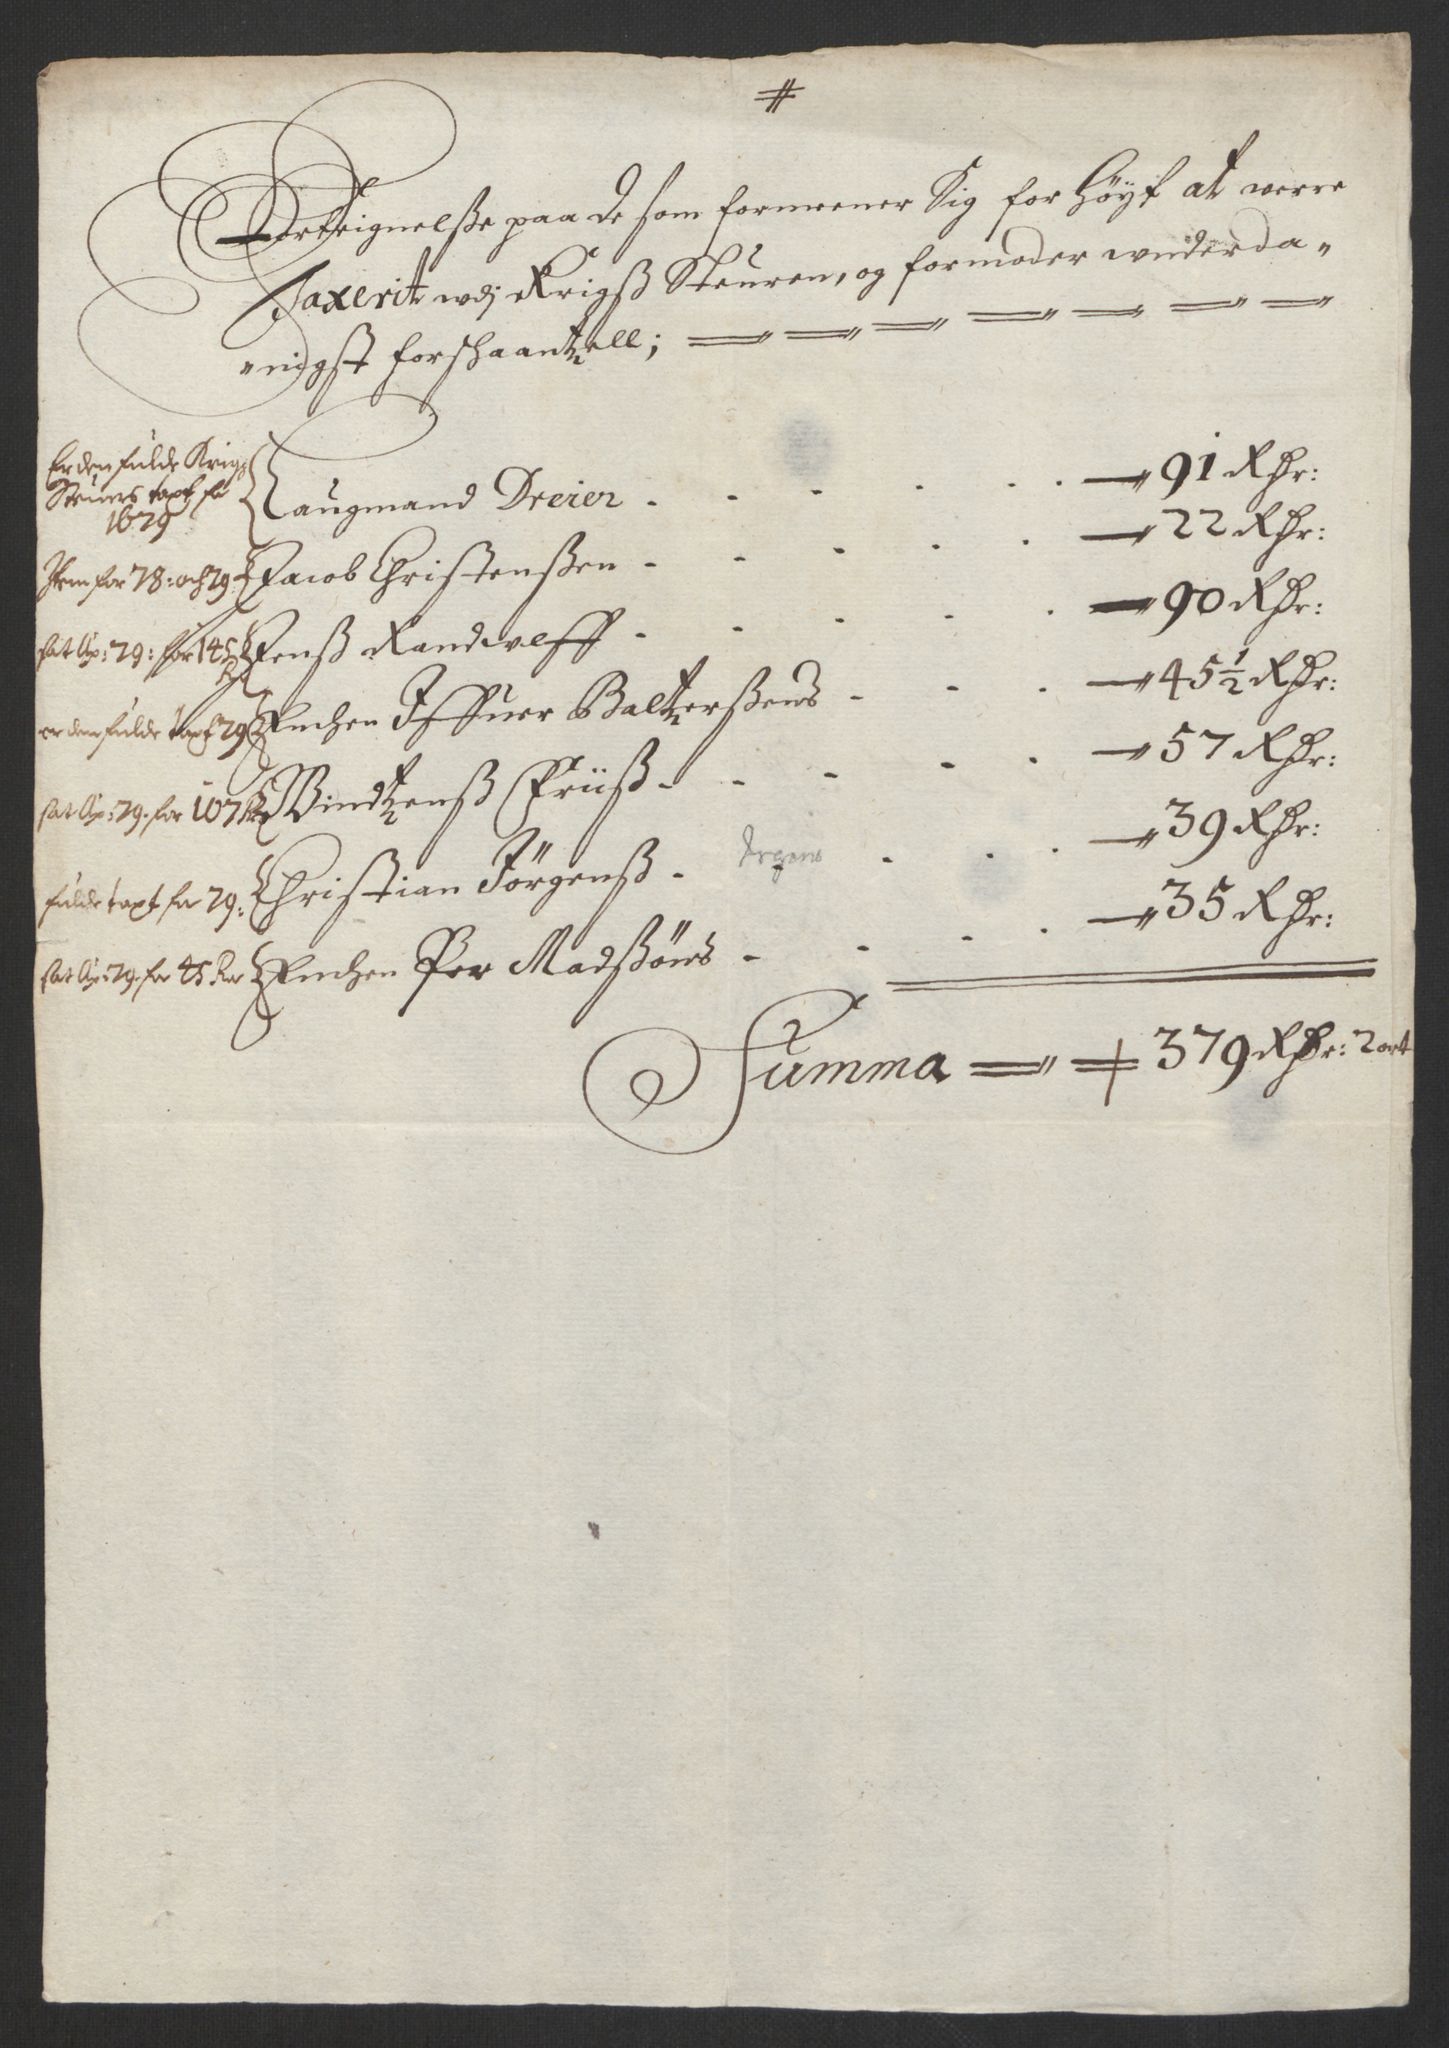 #
Forteignelsse paa de som formeener Sig for Høyt at werre
Taxerit wdj Krigß Steuren, og formoder wnderda-
nigst forschaantzell;
Er den fulde Krigs
Steuers taxt for
1679
Laugmand Dreier - - - - - 91 Rdr:
Item for 78: och 79: Jacob Christenßen - - - - - 22 Rdr:
sat Ao: 79: for 145 Rd Jenß Randulff - - - - - 90 Rdr:
er den fulde taxt 79 Enchen Iffuer Baltzerßens - - - 45½ Rdr:
sat Ao: 79. for 107 Rd Windtzenß Friiß - - - - - 57 Rdr:
fulde taxt for 79: Christian Jørgenß - Jrgens - - - 39 Rdr:
sat Ao: 79. for 45 Rdr Enchen Per Madßøns - - - - 35 Rdr:
Summa 379 Rdr: 2 ort